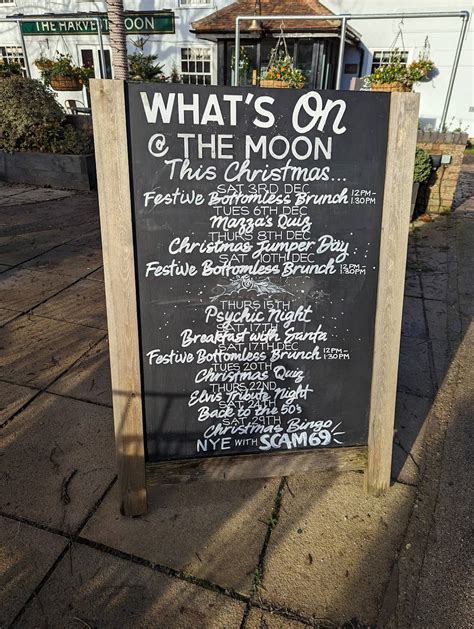 THE HARVEST MOON
WHAT'S ON
@ THE MOON
This Christmas...
SAT 3RD DEC
Festive Bottomless Brunch 12PM-1.30PM
TUES 6TH DEC
Mazza's Quiz
THURS 8TH DEC
Christmas Jumper Day
SAT 10TH DEC
Festive Bottomless Brunch 12PM-1.30PM
THURS 15TH
Psychic Night
SAT 17TH
Breakfast with Santa
SAT 17TH DEC
Festive Bottomless Brunch 12PM-1.30PM
TUES 20TH
Christmas Quiz
THURS 22ND
Elvis Tribute Night
SAT 24TH
Back to the 50's
SAT 29TH
Christmas Bingo
NYE WITH SCAM69